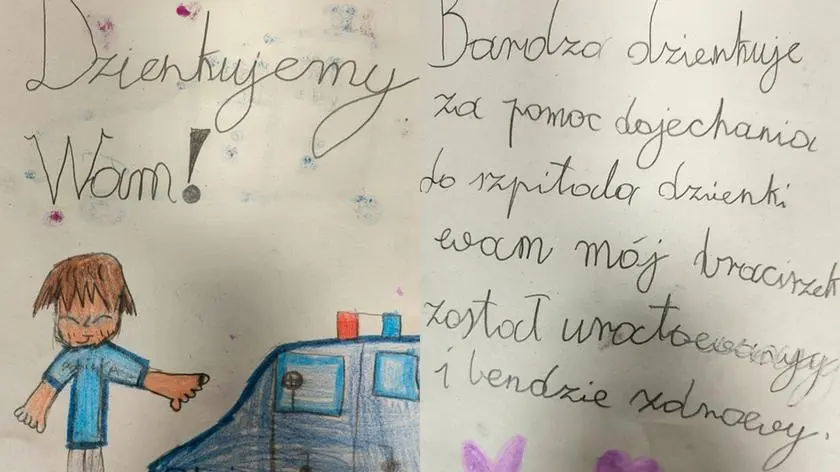 Dzienkujemy
Wam!
Bardzo dzienkuje
za pomoc dojechania
do szpitala dzienki
wam mój braciszek
został uratowany
i bendzie zdrowy.